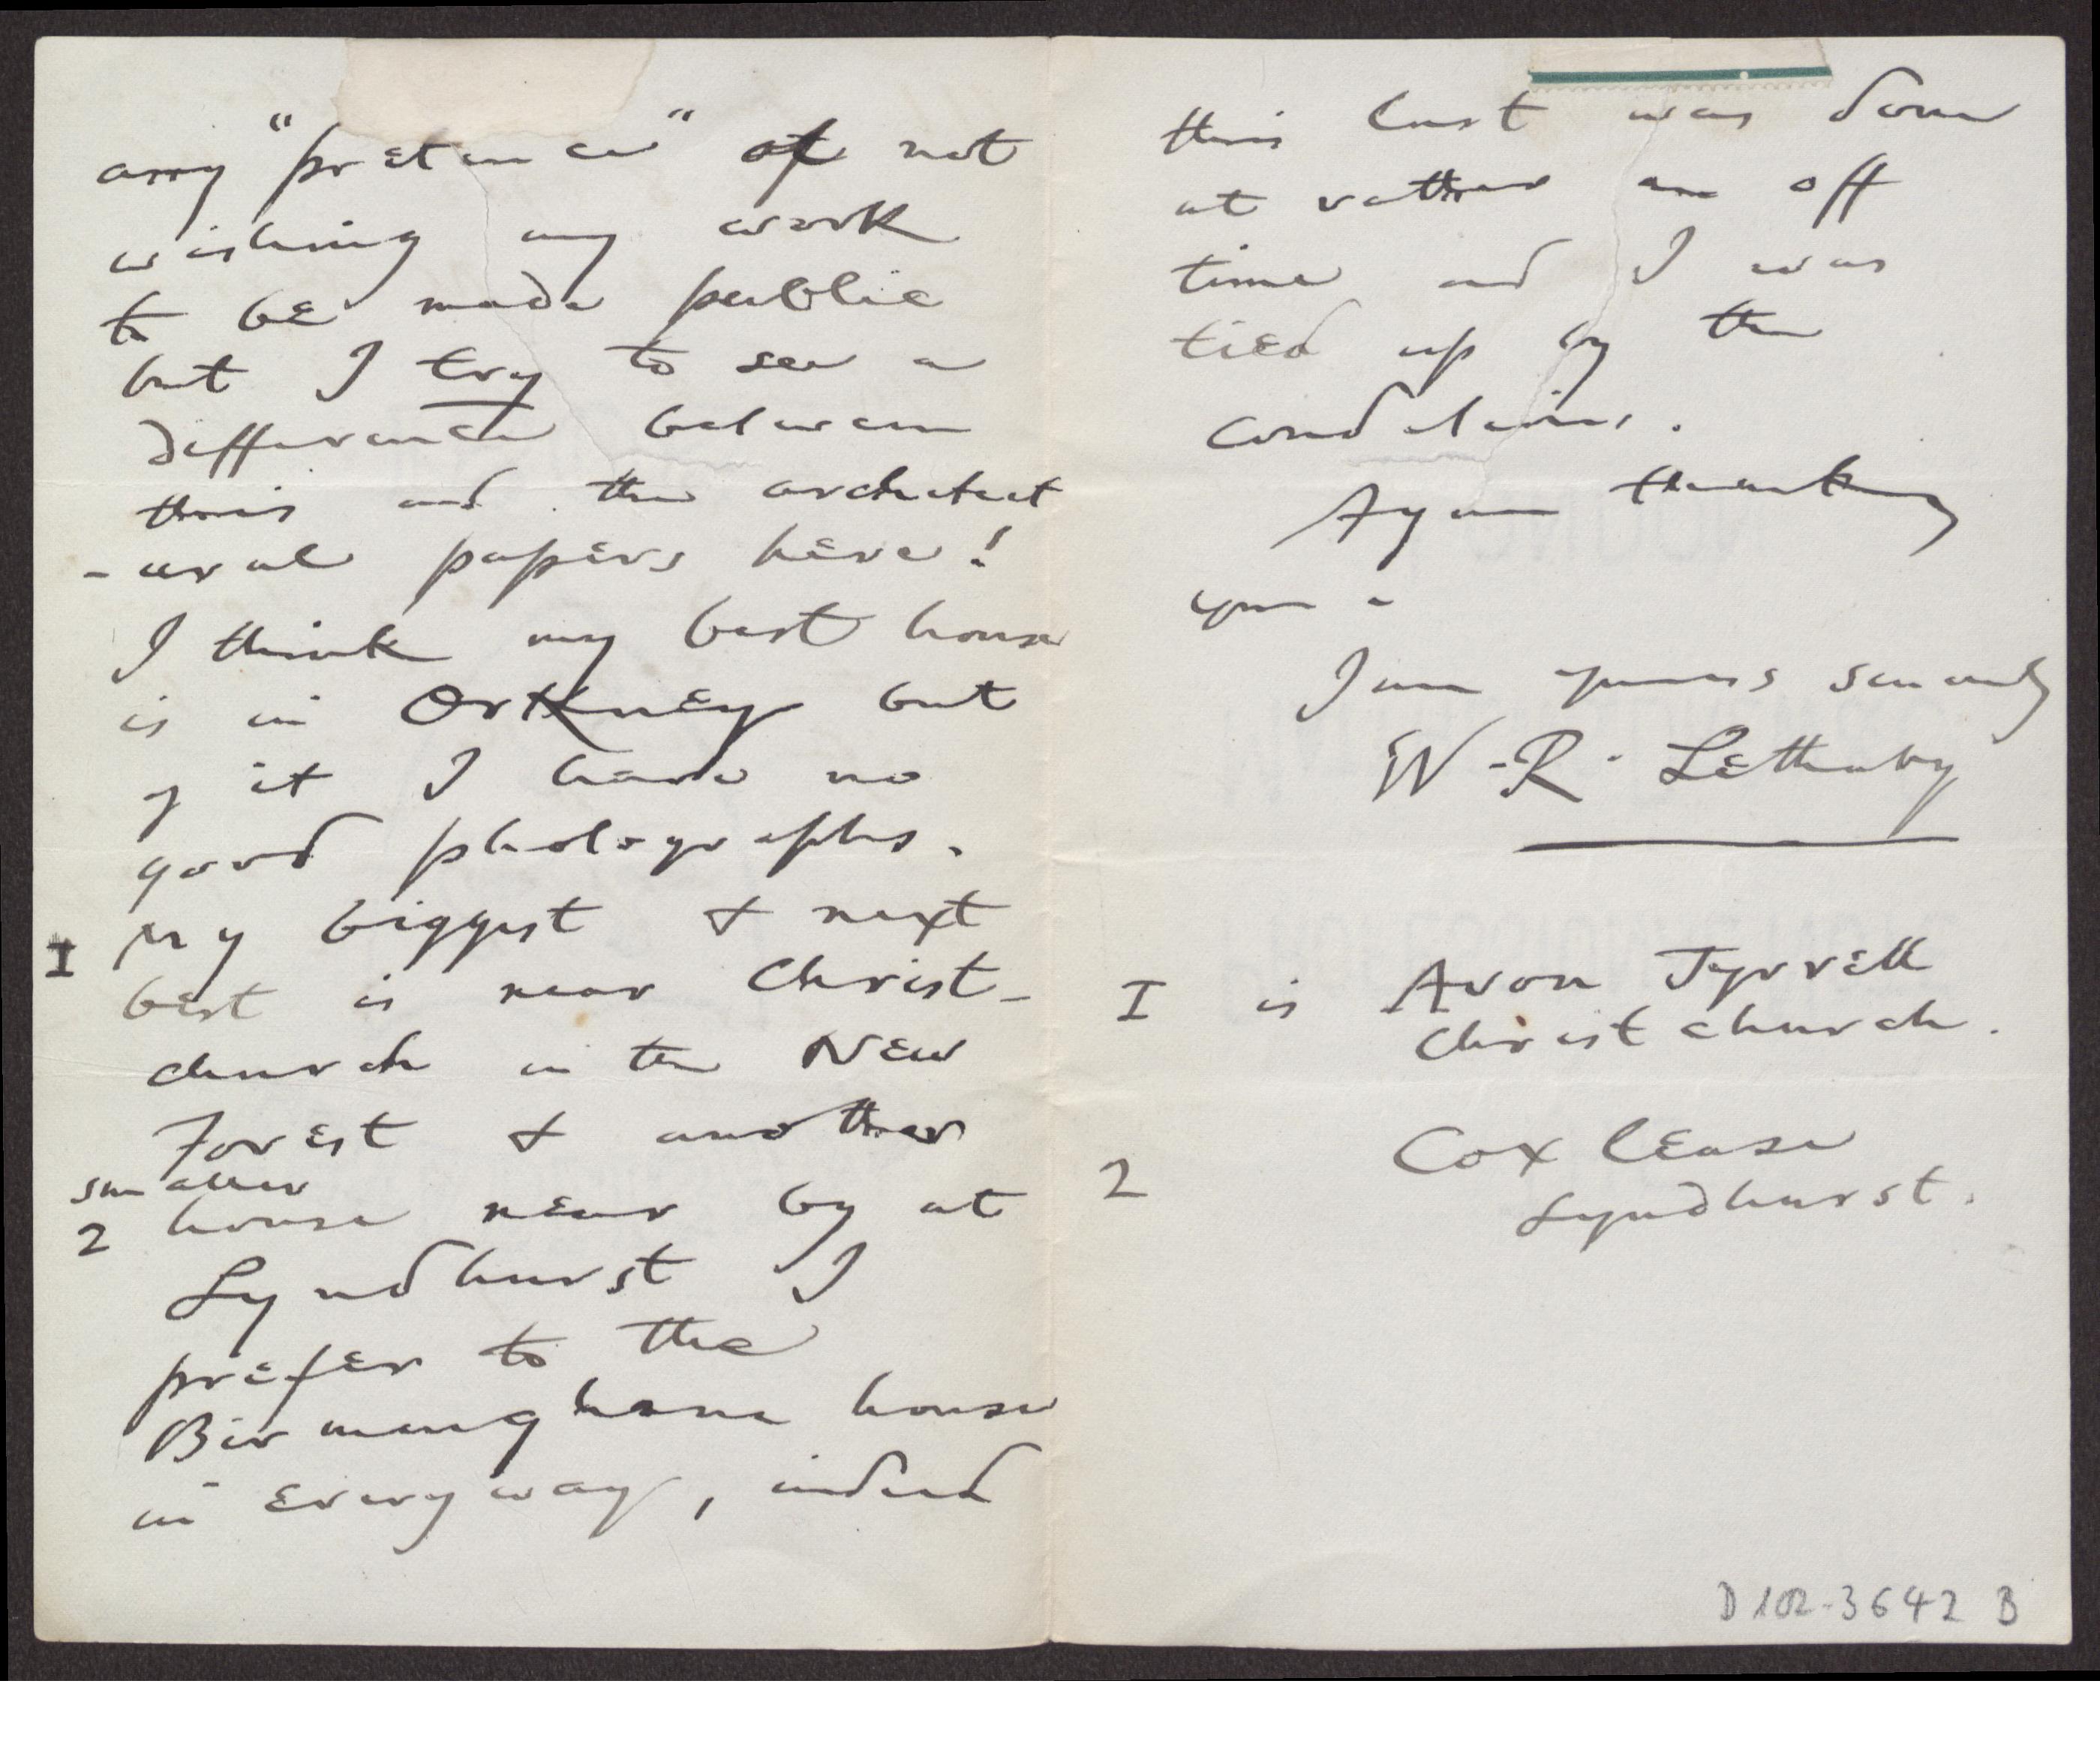 any "pretence" of not
wishing my work
to be made public
but I try to see a
difference between
this and the architect
-ural papers here!
I think my best house
is in Orkney but
of it I have no
good photographs.
1 My biggest & next
best is near Christ-
church in the New
Forest & another
smaller
2 house near by at
Lyndhurst I
prefer to the
Birmingham house
in every way, indeed
this last was done
at rather an off
time and I was
tied up by the
conditions.
Again thanking
you -
I am yours sincerely
W. R. Lethaby
1 is Avon Tyrrell
Christchurch.
2 Coxlease
Lyndhurst.
D 102-3642 B